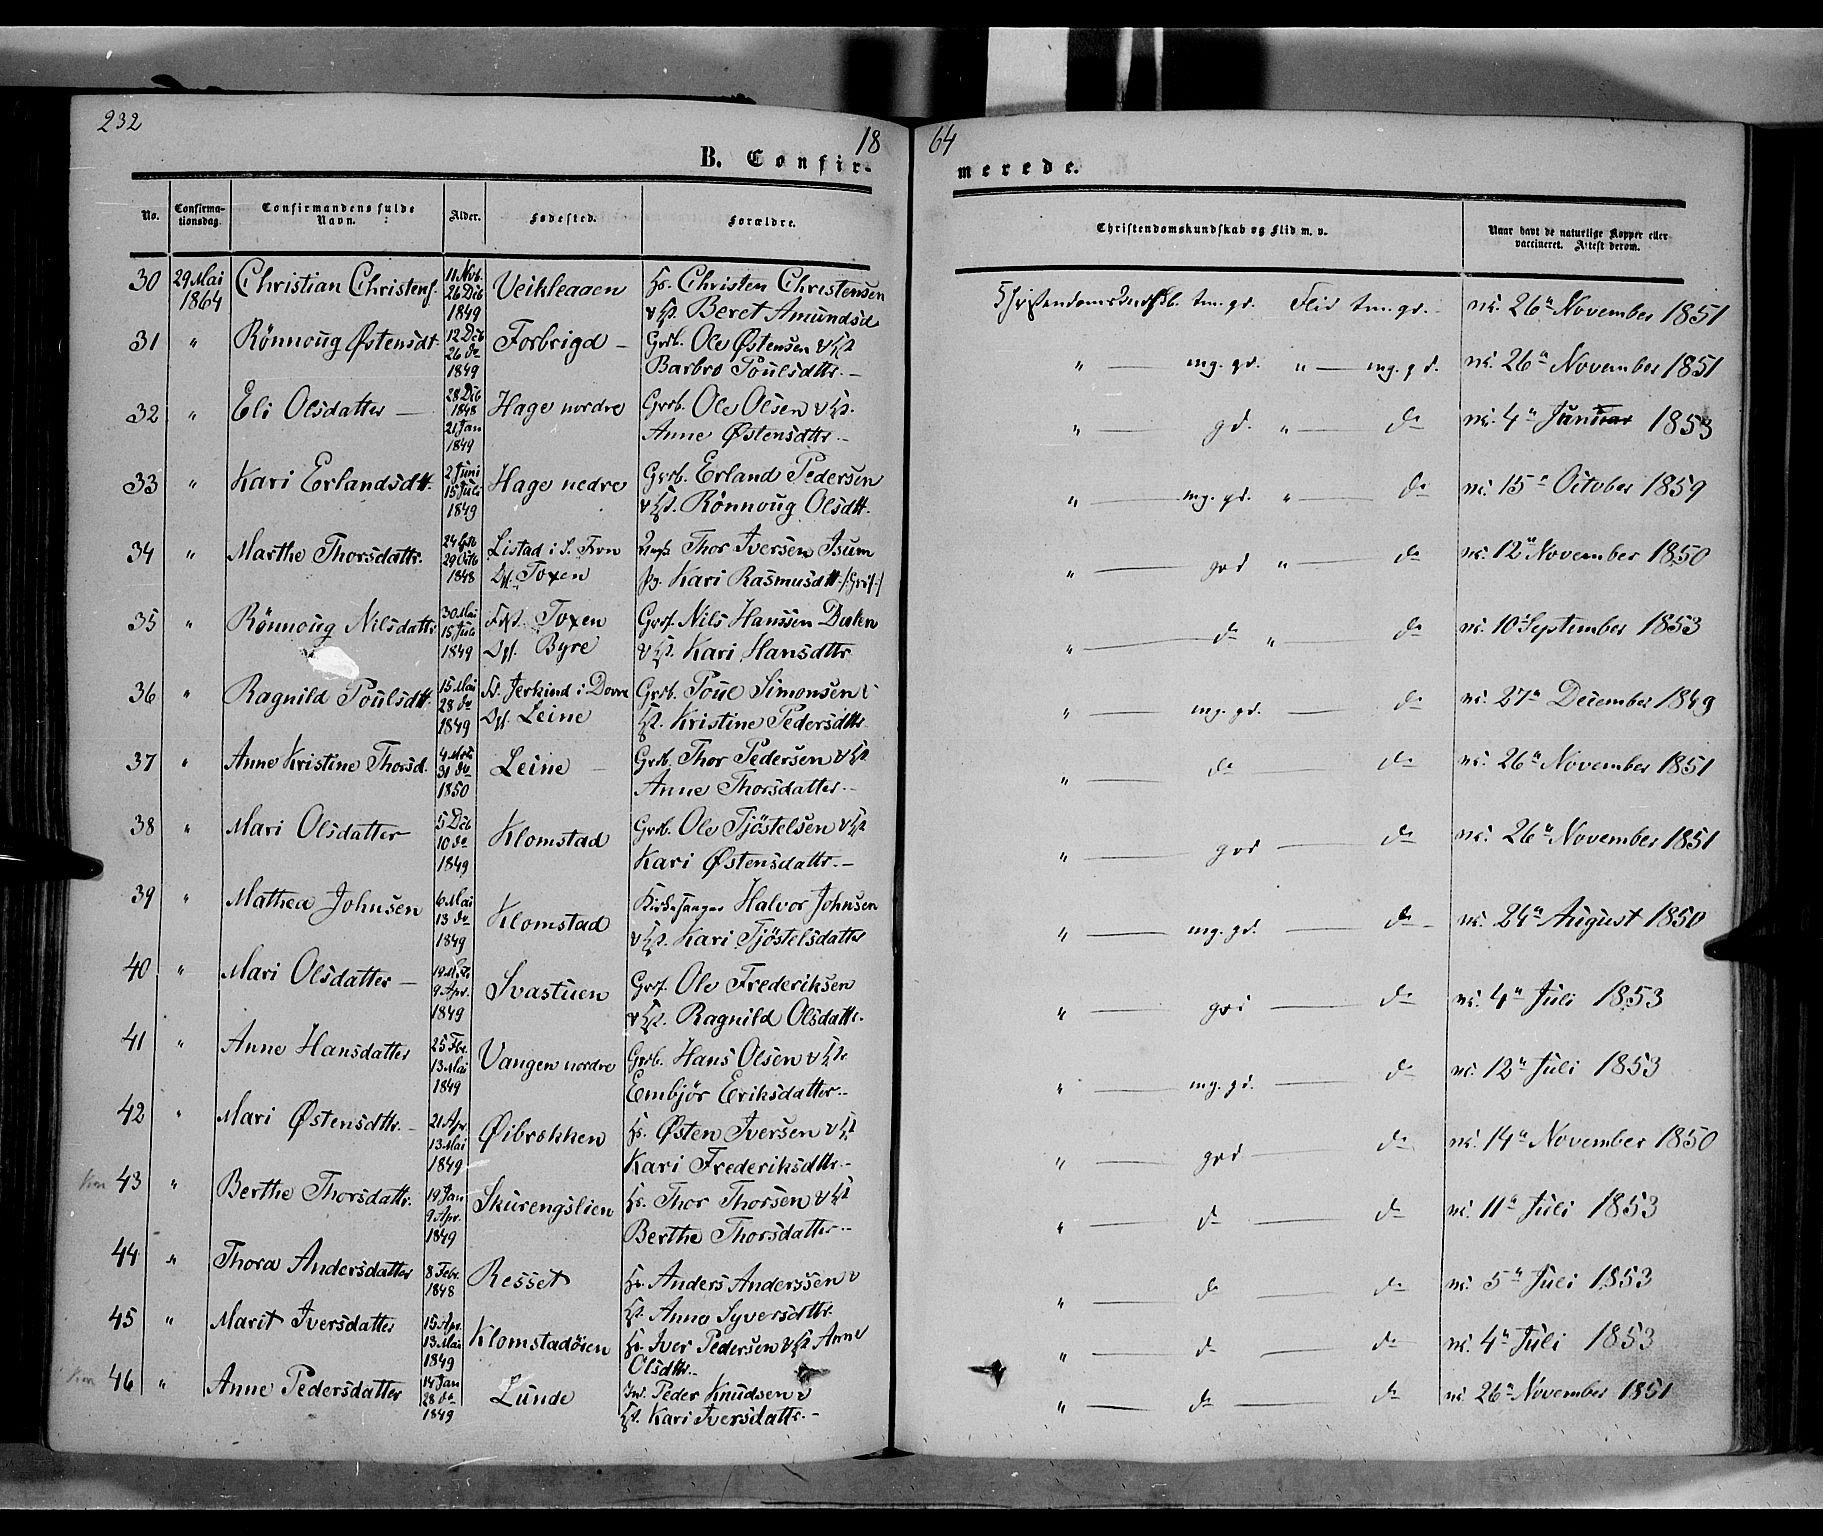 232
18
64
B. Confir-
merede.
No.
Confirma-
tionsdag.
Confirmandens fulde
Navn.
Alder.
Fødested.
Forældre.
Christendomskundskab og Flid m. v.
Naar havt de naturlige Kopper eller
vaccineret. Attest derom.
30 29 Mai 1864 Christian Christens. 11 Nov. 26 Deb 1849 Veikleaaen Hs. Christen Christensen
v Hst. Beret Amundsd
Christendomskundsk. tm. gd. Flid tm. gd. vc. 26n November 1851
31 " Rönnoug Østensdt. 12 Deb 26 do 1849 Forbrigd - Grb. Ole Østensen v Hst
Barbro Poulsdttr. -
" mg. gd. " mg. gd. vc. 26n November 1851
32 " Eli Olsdatter - 28 Deb 1848 21 Jan 1849 Hage nordre Grb. Ole Olsen v Hst.
Anne Østensdttr. -
" gd. " do vc. 4n Januar 1853
33 " Kari Erlandsdtt. 2 Juni 15 Juli 1849 Hage nedre Grb. Erland Pedersen
v Hst. Rönnoug Olsdtt.
" mg. gd. " do vc. 15n October 1859
34 " Marthe Thorsdattr. 29 Octb 1848 Listad i S. Fron
Opf. Toxen
Thor Iversen Isum
Pg. Kari Rasmusdtt.
" god " do vc. 12n November 1850
35 " Rönnoug Nilsdattr 30 Mai 15 Juli 1849 Fdst. Toxen
Opf. Byre
Nils Hanssen
v Hst. Kari Hansdttr
" do " do vc. 10n September 1853
36 " Ragnild Poulsdtt. 15 Mai 28 do 1849 Jerkind i Dovre
Opf. Leine
Grb. Poul Simonsen v
Hst. Kristine Pedersdttr.
" mg. gd. do vc. 27n December 1849
37 " Anne Kristine Thorsd. 4 Mrts 31 do 1850 Leine - Grb. Thor Pedersen v Hst
Anne Thorsdatter. -
" do do vc. 26n November 1851
38 " Mari Olsdatter 5 Deb 10 do 1849 Klomstad Grb. Ole Tjöstelsen v Hst
Kari Østensdattr. -
" god do vc. 26n November 1851
39 " Mathea Johnsen 6 Mai 13 do 1849 Klomstad Kirkesanger Halvor Johnsen
v Hst. Kari Tjöstelsdatter
" mg. gd. do vc. 24n August 1850
40 " Mari Olsdatter - 9 Apr. 1849 Svastuen Ole Frederiksen
v Hst. Ragnild Olsdattr.
" god do vc. 4n Juli 1853
41 " Anne Hansdatter 25 Fbr. 13 Mai 1849 Vangen nordre Grb. Hans Olsen v Hst
Embjör Eriksdatter. -
" mg. gd. do vc. 12n Juli 1853
42 " Mari Østensdttr. - 21 Apr. 13 Mai 1849 Øibrekken Hs. Østen Iversen v Hst
Kari Frederiksdttr. -
" god do vc. 14n November 1850
43 " Berthe Thorsdattr. 19 Jan 9 Apr. 1849 Skurengslien Hs. Thor Thorsen v Hst
Berthe Thorsdatter. -
" do do vc. 11n Juli 1853
44 " Thora Andersdatter 8 Febr. 1848 Resset Hs. Anders Anderssen v
Hst. Anne Syversdttr.
" do do vc. 5n Juli 1853
45 " Marit Iversdatter 15 Apr. 13 Mai 1849 Klomstadöien Hs. Iver Pedersen v Hst Anne
Olsdttr. -
" do do vc. 4n Juli 1853
46 " Anne Pedersdatter 14 Jan 28 do 1849 Lunde Peder Knudsen v
Hst. Kari Iversdattr. -
" do do vc. 26n November 1851